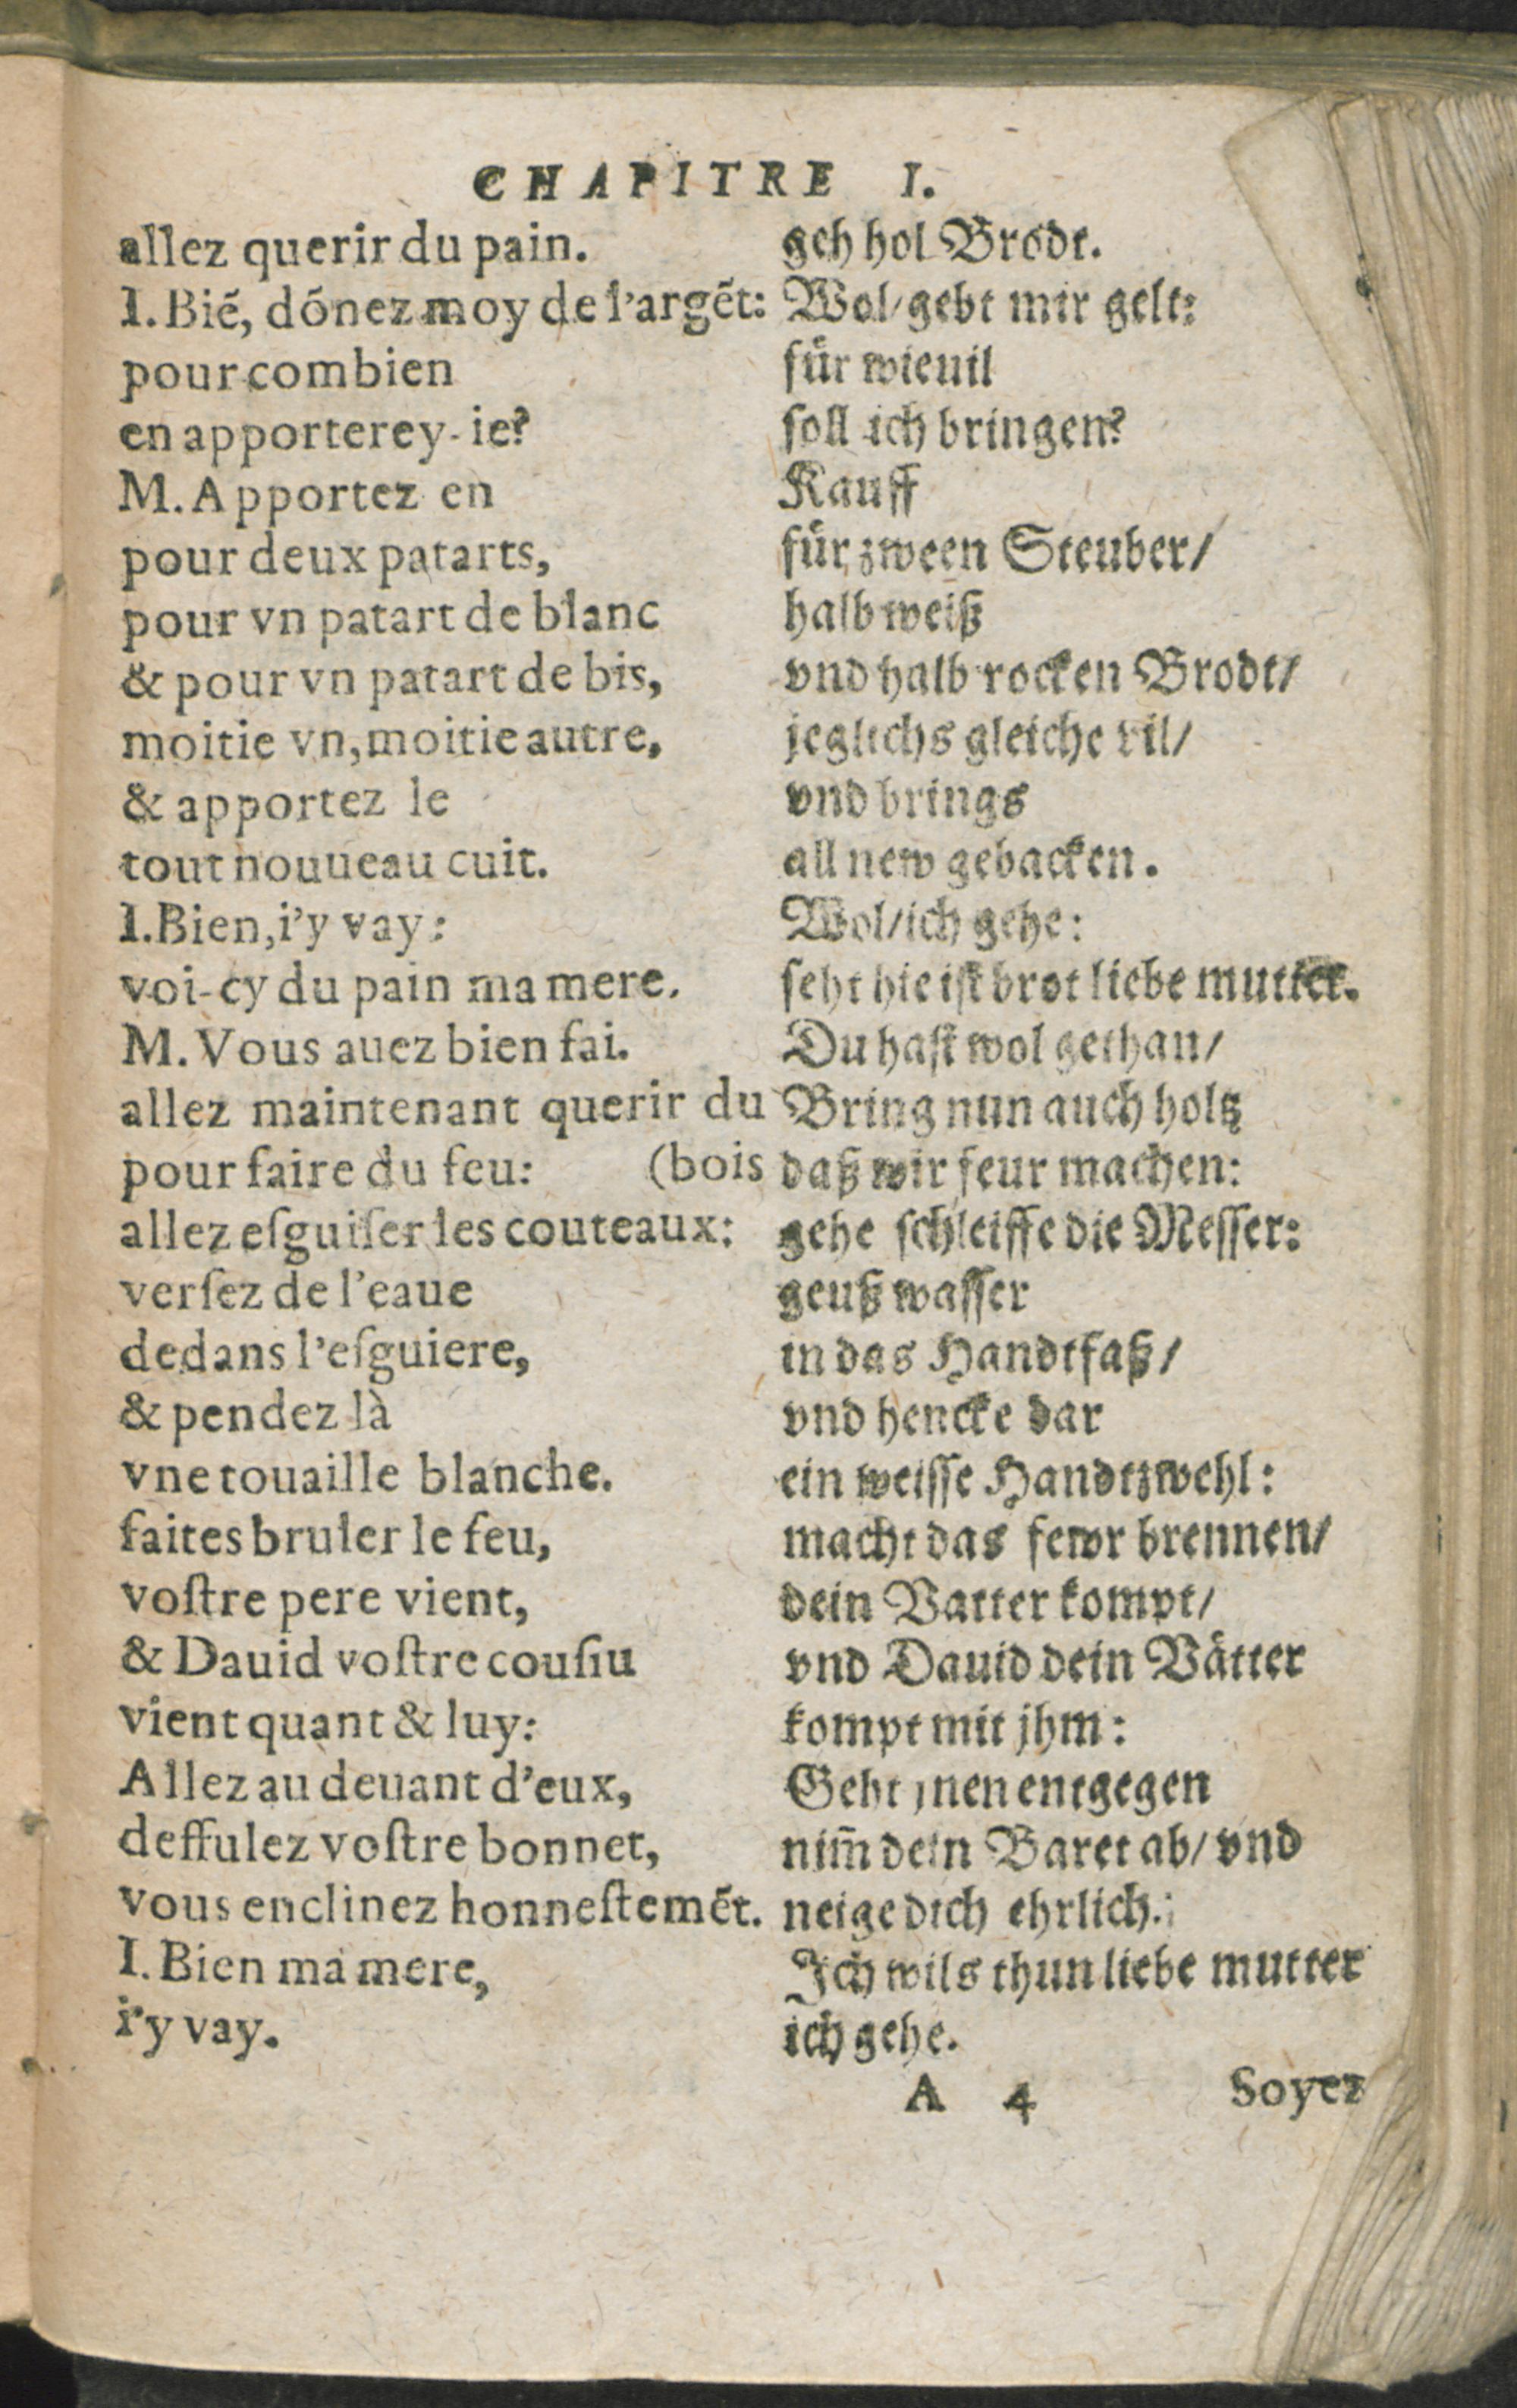 CHAPITRE I.
allez querir du pain.
I. Bié, dónez moy de l'argét:
pour combien
en apporterey-ie?
M. Apportez en
pour deux patarts,
pour vn patart de blanc
& pour vn patart de bis,
moitie vn, moitie autre,
& apportez le
tout nouueau cuit.
I. Bien, i'y vay:
voi-cy du pain ma mere.
M. Vous auez bien fai.
allez maintenant querir du
pour faire du feu: (bois
allez eſguiſer les couteaux:
verſez de l'eaue
dedans l'eſguiere,
& pendez là
vne touaille blanche.
faites bruler le feu,
voſtre pere vient,
& Dauid voſtre couſiu
vient quant & luy:
Allez au deuant d'eux,
deffulez voſtre bonnet,
vous enclinez honneſtemét.
I. Bien ma mere,
i'y vay.
geh hol Brodt.
Wol/gebt mir gelt:
für wieuil
ſoll ich bringen?
Kauff
für zween Steuber/
halb weiß
vnd halb rocken Brodt/
jeglichs gleiche vil/
vnd brings
all new gebacken.
Wol/ich gehe:
ſeht hie iſt brot liebe mutter.
Du haſt wol gethan/
Bring nun auch holtz
daß wir feur machen:
gehe ſchleiffe die Meſſer:
geuß waſſer
in das Handtfaß/
vnd hencke dar
ein weiſſe Handtzwehl:
macht das fewr brennen/
dein Vatter kompt/
vnd Dauid dein Vätter
kompt mit jhm:
Geht jnen entgegen
nim̃ dein Baret ab/ vnd
neige dich ehrlich.
Ich wils thun liebe mutter
ich gehe.
A 4 Soyez